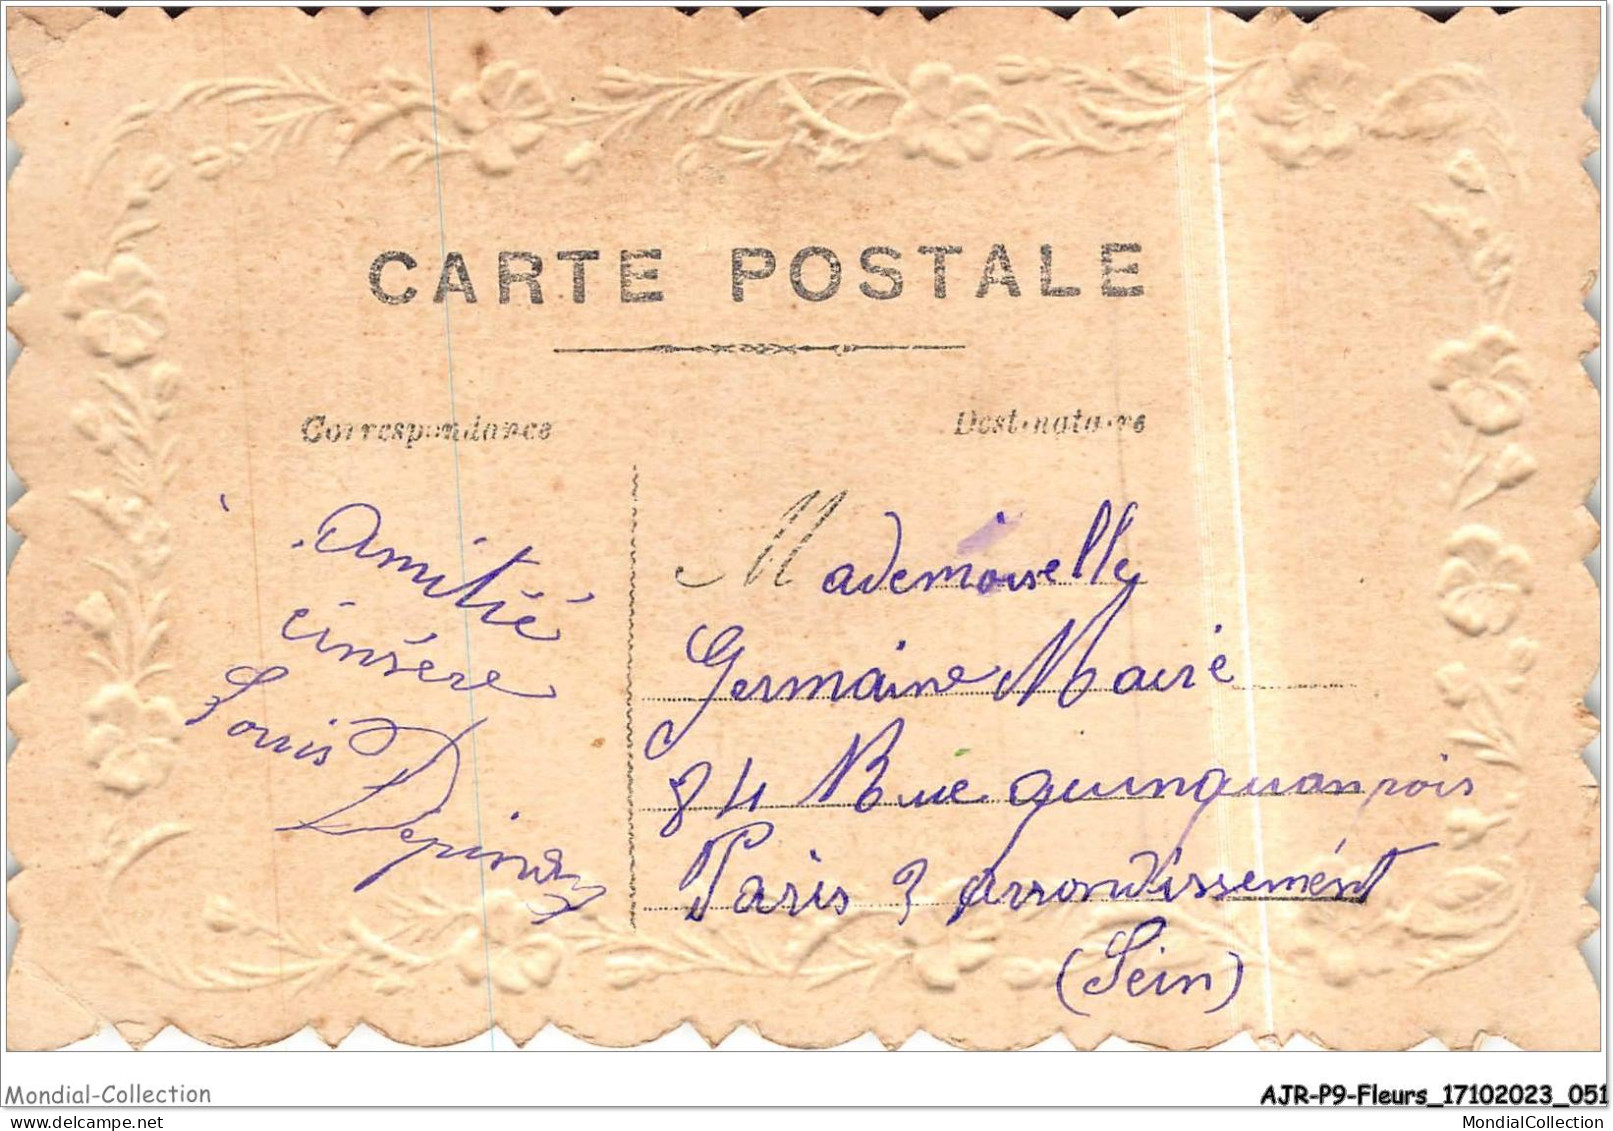 CARTE POSTALE
Correspondance
Destinataire
Amitié
cinsère
Louis
Mademoiselle
Germaine Maire
84 Rue quinquanpois
Paris 3 arrondissement
(Sein)
Mondial-Collection
AJR-P9-Fleurs_17102023_051
www.delcampe.net
MondialCollection